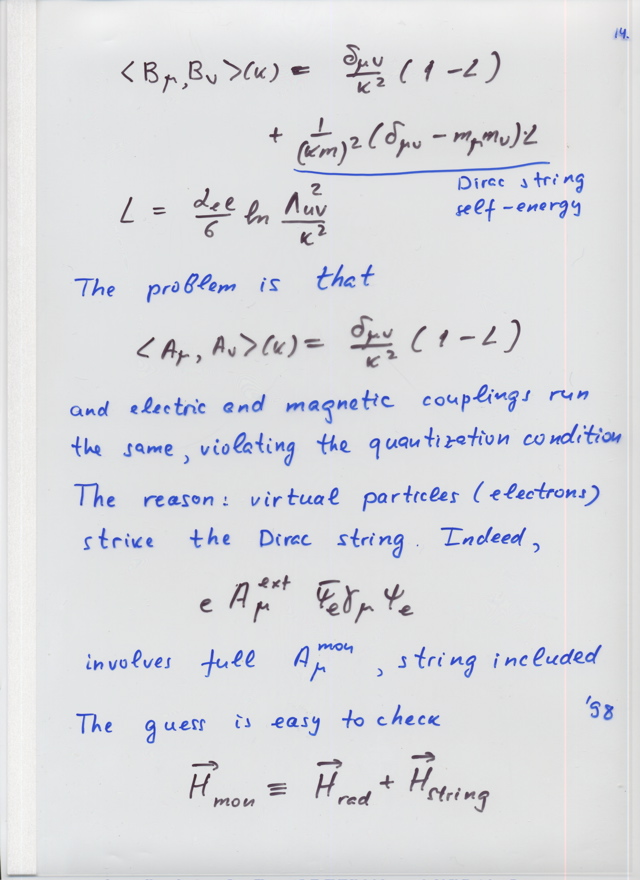 14.
<B_μ, B_ν>(κ) = δ_μν/κ² (1 − L)
+ 1/(κm)² (δ_μν − m_μ m_ν)·L
Dirac string
self-energy
L = α_el/6 ln Λ²_UV/κ²
The problem is that
<A_μ, A_ν>(κ) = δ_μν/κ² (1 − L)
and electric and magnetic couplings run
the same, violating the quantization condition
The reason: virtual particles (electrons)
strike the Dirac string. Indeed,
e A_μ^ext Ψ̄_e γ_μ Ψ_e
involves full A_μ^mon, string included
The guess is easy to check '98
H⃗_mon ≡ H⃗_rad + H⃗_string